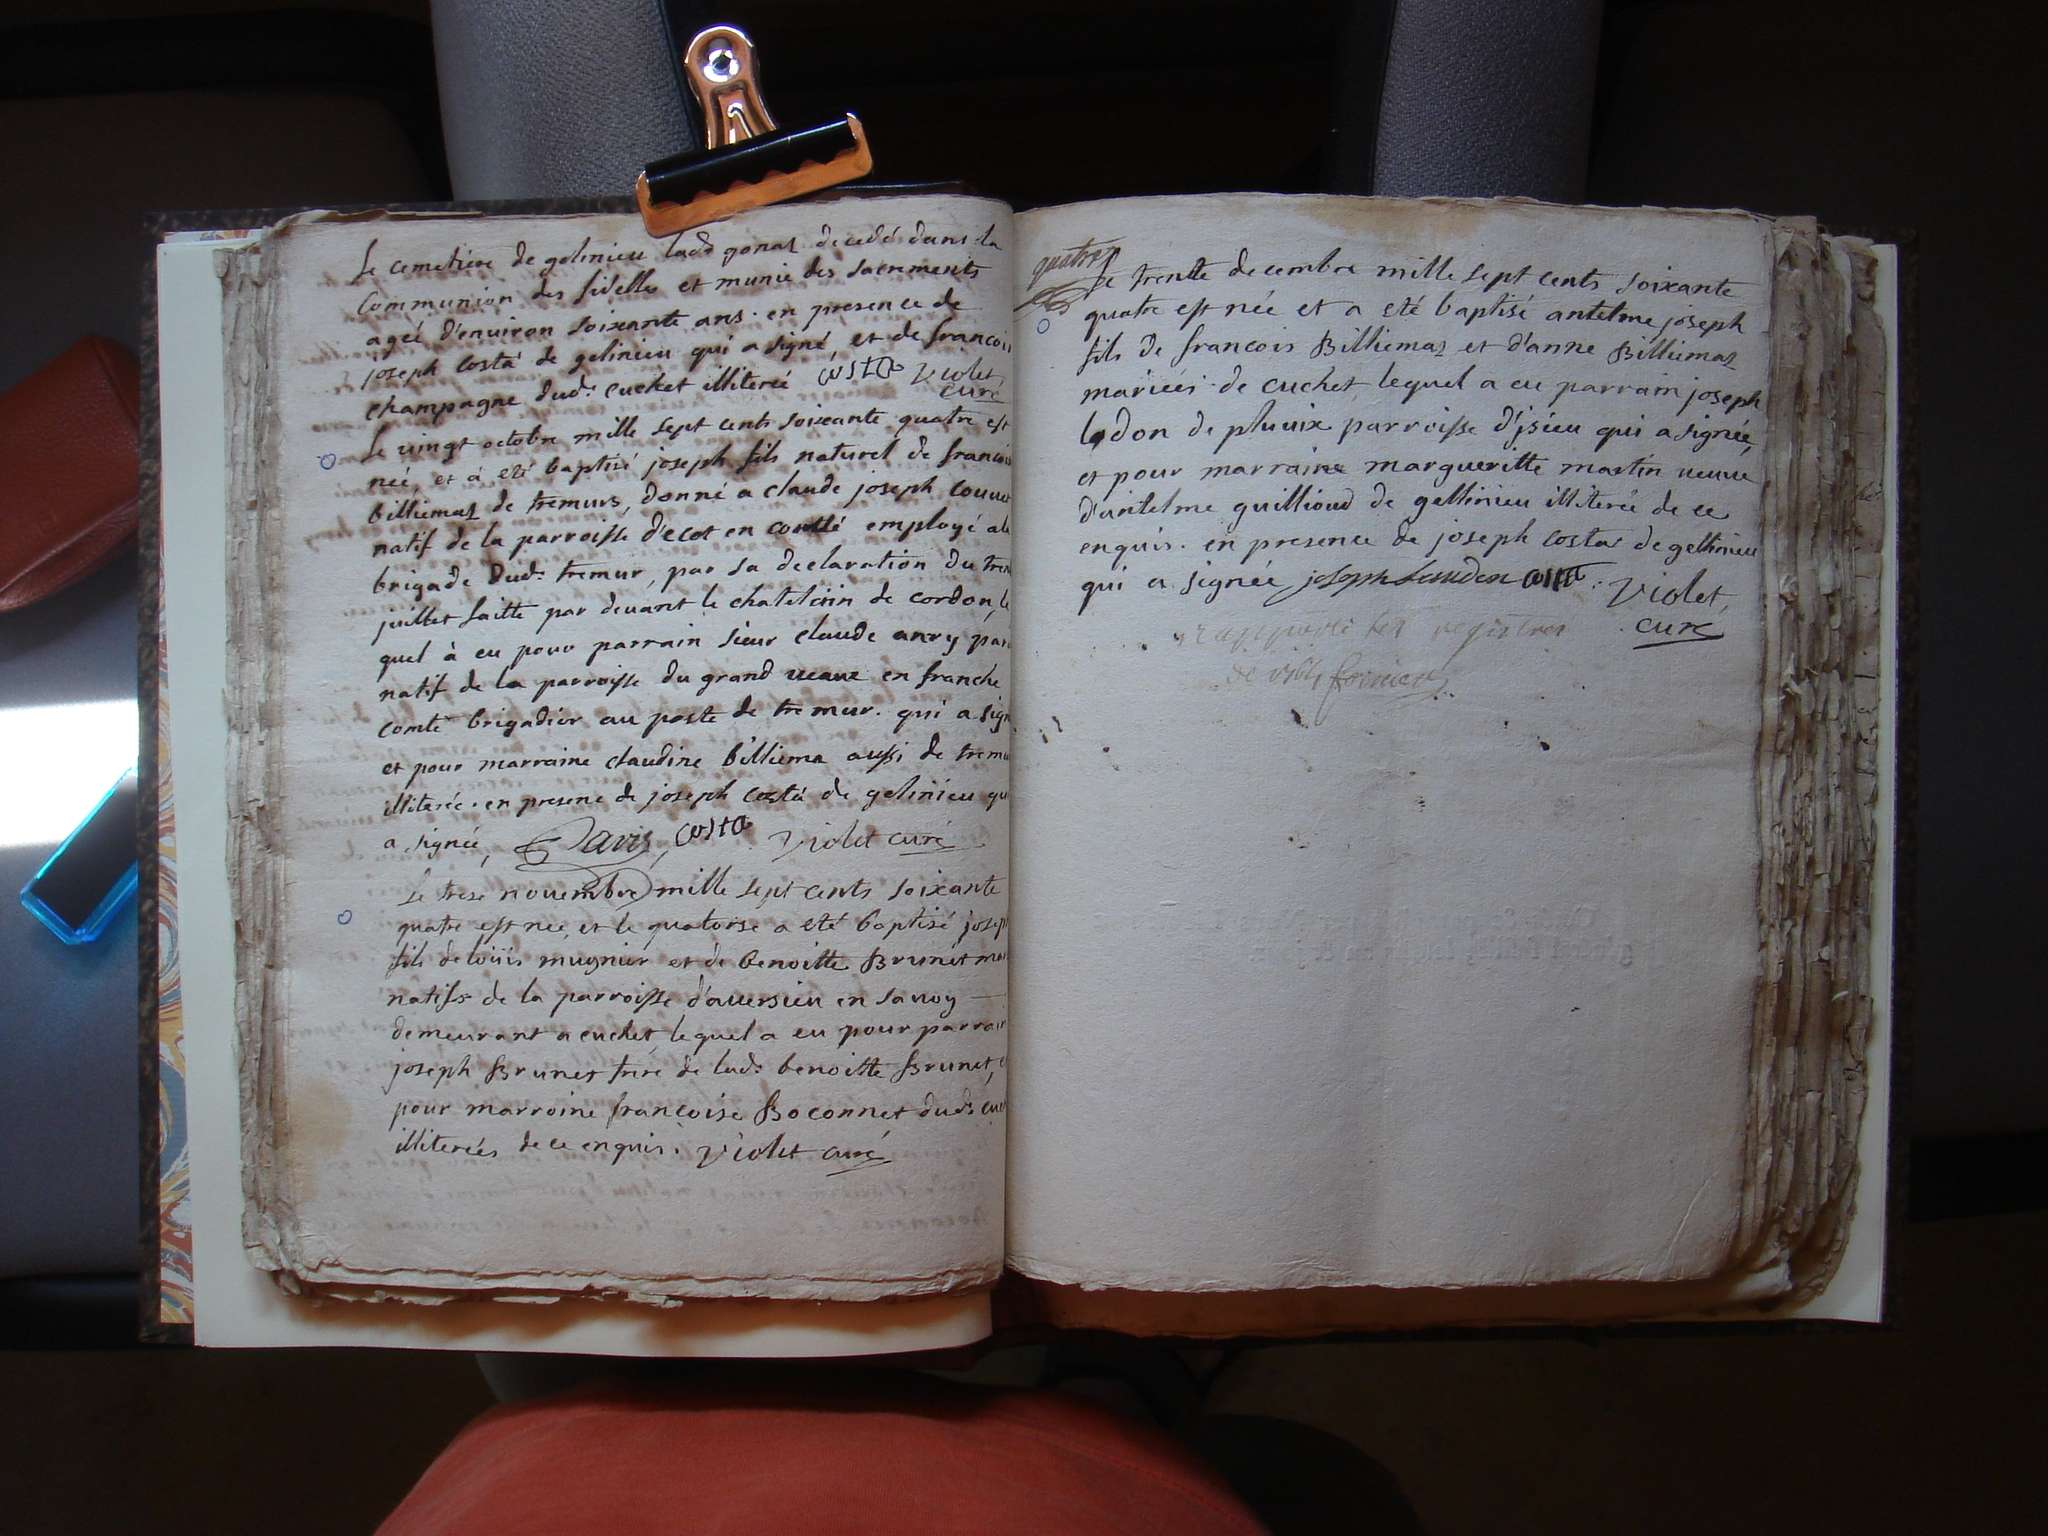 Le cemetiere de gelinieu lad gonaz decedé dans la
Communion des fidelles et munie des sacrements
ageé d'environ soixante ans. en presence de
joseph costa de gelinieu qui a signé, et de francois
champagne dud. cuchet illiteré costa Violet
curé
Le vingt octobre mille sept cents soixante quatre est
née et à eté baptisé joseph fils naturel de francois
billiemaz de tremurs, donné a claude joseph
natif de la parroisse d'ecot en comté employé a la
brigade dud. tremur, par sa declaration du
juillet faitte par devant le chatelain de cordon, le
quel à eu pour parrain sieur claude
natif de la parroisse du grand en franche
comté brigadier au poste de tremur. qui a sign
et pour marraine claudine billiema aussi de tremu
illiterée. en presene de joseph costa de gelinieu qu
a signée, costa Violet curé
Le trese novembre mille sept cents soixante
quatre est nee, et le quatorse a eté baptisé josep
fils de loüis mugnier et de benoitte Brunet mar
natifs de la parroisse d'aversieu en savoy
demeurant a cuchet, lequel a eu pour parrain
joseph Brunet frere de lad. benoitte Brunet, e
pour marroine francoise Boconnet dud. cuc
illiterées de ce enquis. Violet curé
quatre
Le trente decembre mille sept cents soixante
quatre est née et a eté baptisé antelme joseph
fils de francois Billiemaz et d'anne Billiemaz
marieés de cuchet, lequel a eu parrain joseph
lodon de pluvix parroisse d'jsieu qui a signée,
et pour marraine margueritte martin veuve
d'antelme guillioud de gellinieu illiterée de ce
enquis. en presence de joseph costa de gellinieu
qui a signée joseph Laudon costa. Violet,
curé
registres
de